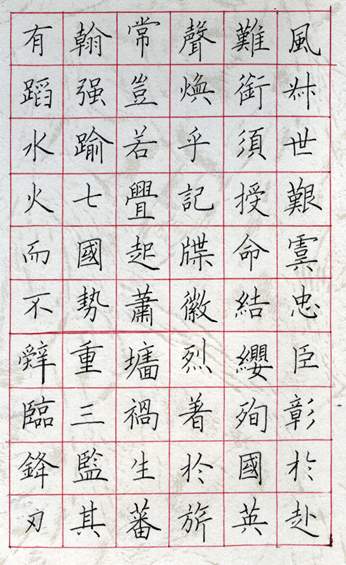 風艸世艱虞忠臣彰於赴
難銜須授命結纓殉國英
聲煥乎記牒徽烈著於旂
常豈若疊起蕭墻禍生蕃
翰强踰七國勢重三監其
有蹈水火而不辭臨鋒刃